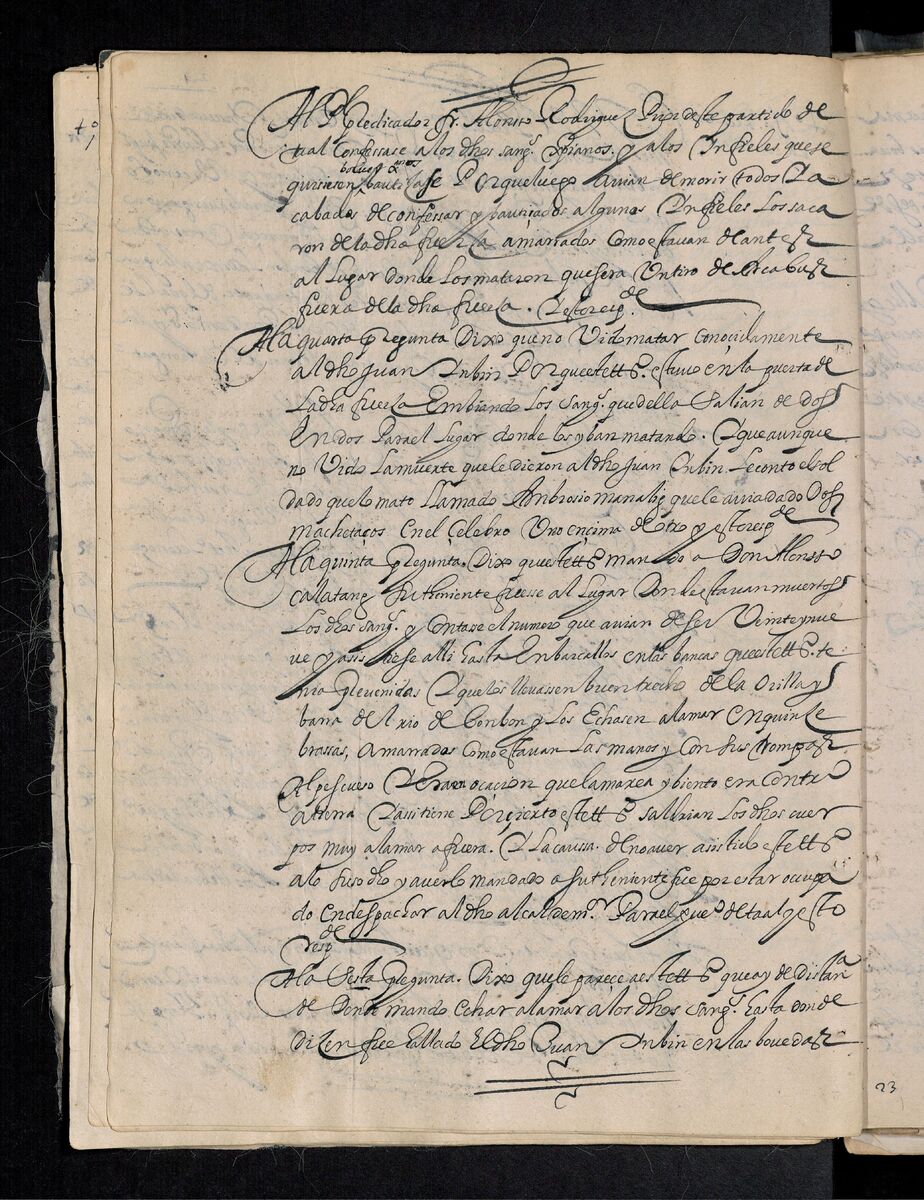 Al Pe Predicador fr. Alonsso Rodriguez Prior deste partido de
taal confessase a los dhos sang.s xpianos. y a los Infieles que se
bolber xpnos
quisiesen bautisasse Porque luego avian de morir todos Y a
cabados de confessar y bautizados algunos Infieles los saca
ron de la dha fuerza amarrados como estavan de antes
al Lugar donde los mataron que sera Un tiro de Arcabus
fuera de la dha fuerza. Y esto resp.de
A la quarta Pregunta Dixo que no Vido matar conocidamente
al dho Juan Inbin Porque este tt.o estuvo en la puerta de
La dha fuerza Embiando Los sang.s que della Salian de dos
En dos Para el Lugar donde los yban matando. Y que aunque
no Vido La muerte que le dieron al dho Juan Inbin. Le conto el sol
dado que lo mato llamado Ambrosio manalig que le avia dado Dos
machetaços en el celebro Uno encima de otro y esto resp.de
A la quinta Pregunta. Dixo que este tt.o mando a Don Alonsso
calatang su theniente fuesse al Lugar Donde estavan muertos
Los dhos sang.s y Contase el numero que avian de ser Veinte y nue
ve y asistiese alli hasta Enbarcallos en las bancas que este tt.o te
nia Prevenidas Y que los llevassen buen trecho de la Orilla y
bara del rio de bonbon y Los Echasen a la mar en quinze
brassas, amarrados como estavan Las manos y con sus trompas
Al pescueso Y era en ocacion que la marea y biento era contra
a tierra Y assi tiene Por çierto este tt.o saldrian Los dhos cuer
pos muy a la mar a fuera. Y La caussa de no aver asistido este tt.o
a lo suso dho y averlo mandado a su theniente fue por estar ocupa
do en despachar al dho alcalde m.r Para el pue.o de taal y esto
resp.de
A la Sesta Pregunta. Dixo que le parece a este tt.o que ay de distan.a
de Donde mando echar a la mar a los dhos sang.s hasta donde
dizen fue hallado El dho Juan Inbin en las bovedas
23